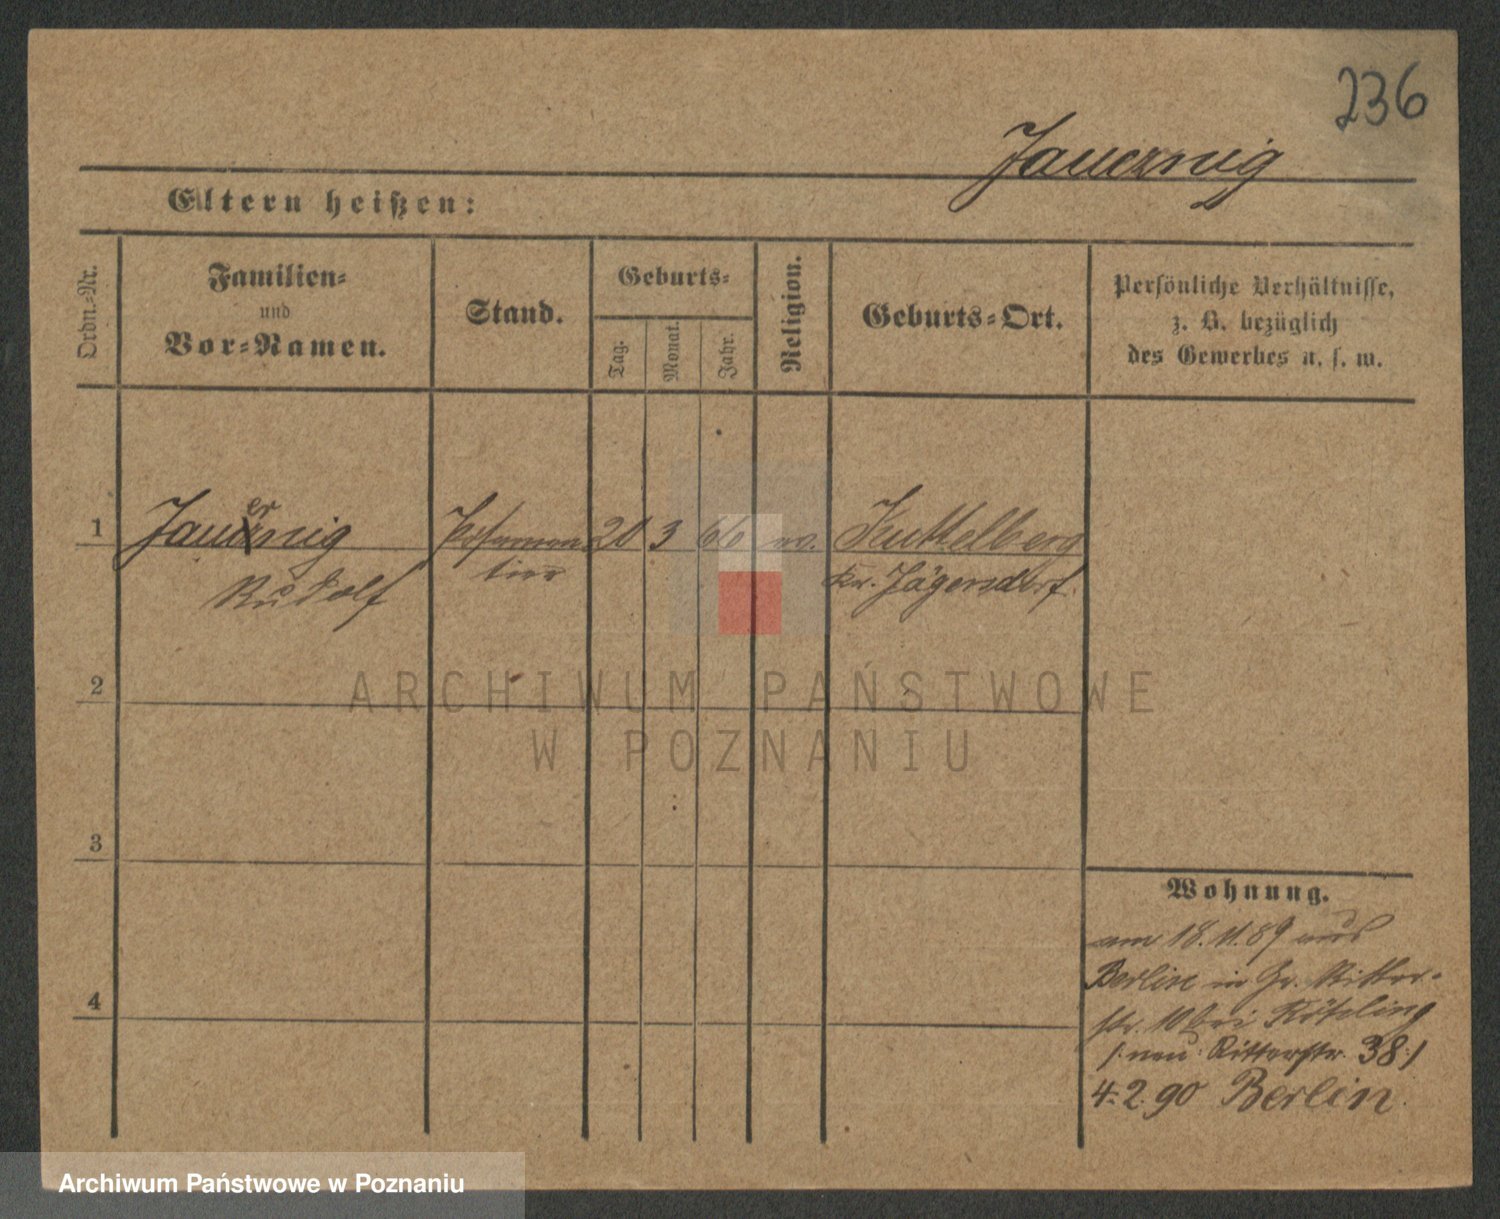 236
Jauernig
Eltern heißen:
Ordn.-Nr.
Familien-
und
Vor-Namen.
Stand.
Geburts-
Tag.
Monat.
Jahr.
Religion.
Geburts-Ort.
Persönliche Verhältnisse,
z. B. bezüglich
des Gewerbes u. s. w.
1
Jauernig
Rudolf
Posamen
tier
20
3
66
Kuttelberg
Kr. Jägersdorf
2
3
4
Wohnung.
am 18.11.89 aus
Berlin in Gr. Ritter-
str. 10 bei Rösling
/: neu: Ritterstr. 38:/
4.2.90 Berlin.
ARCHIWUM PAŃSTWOWE
W POZNANIU
Archiwum Państwowe w Poznaniu